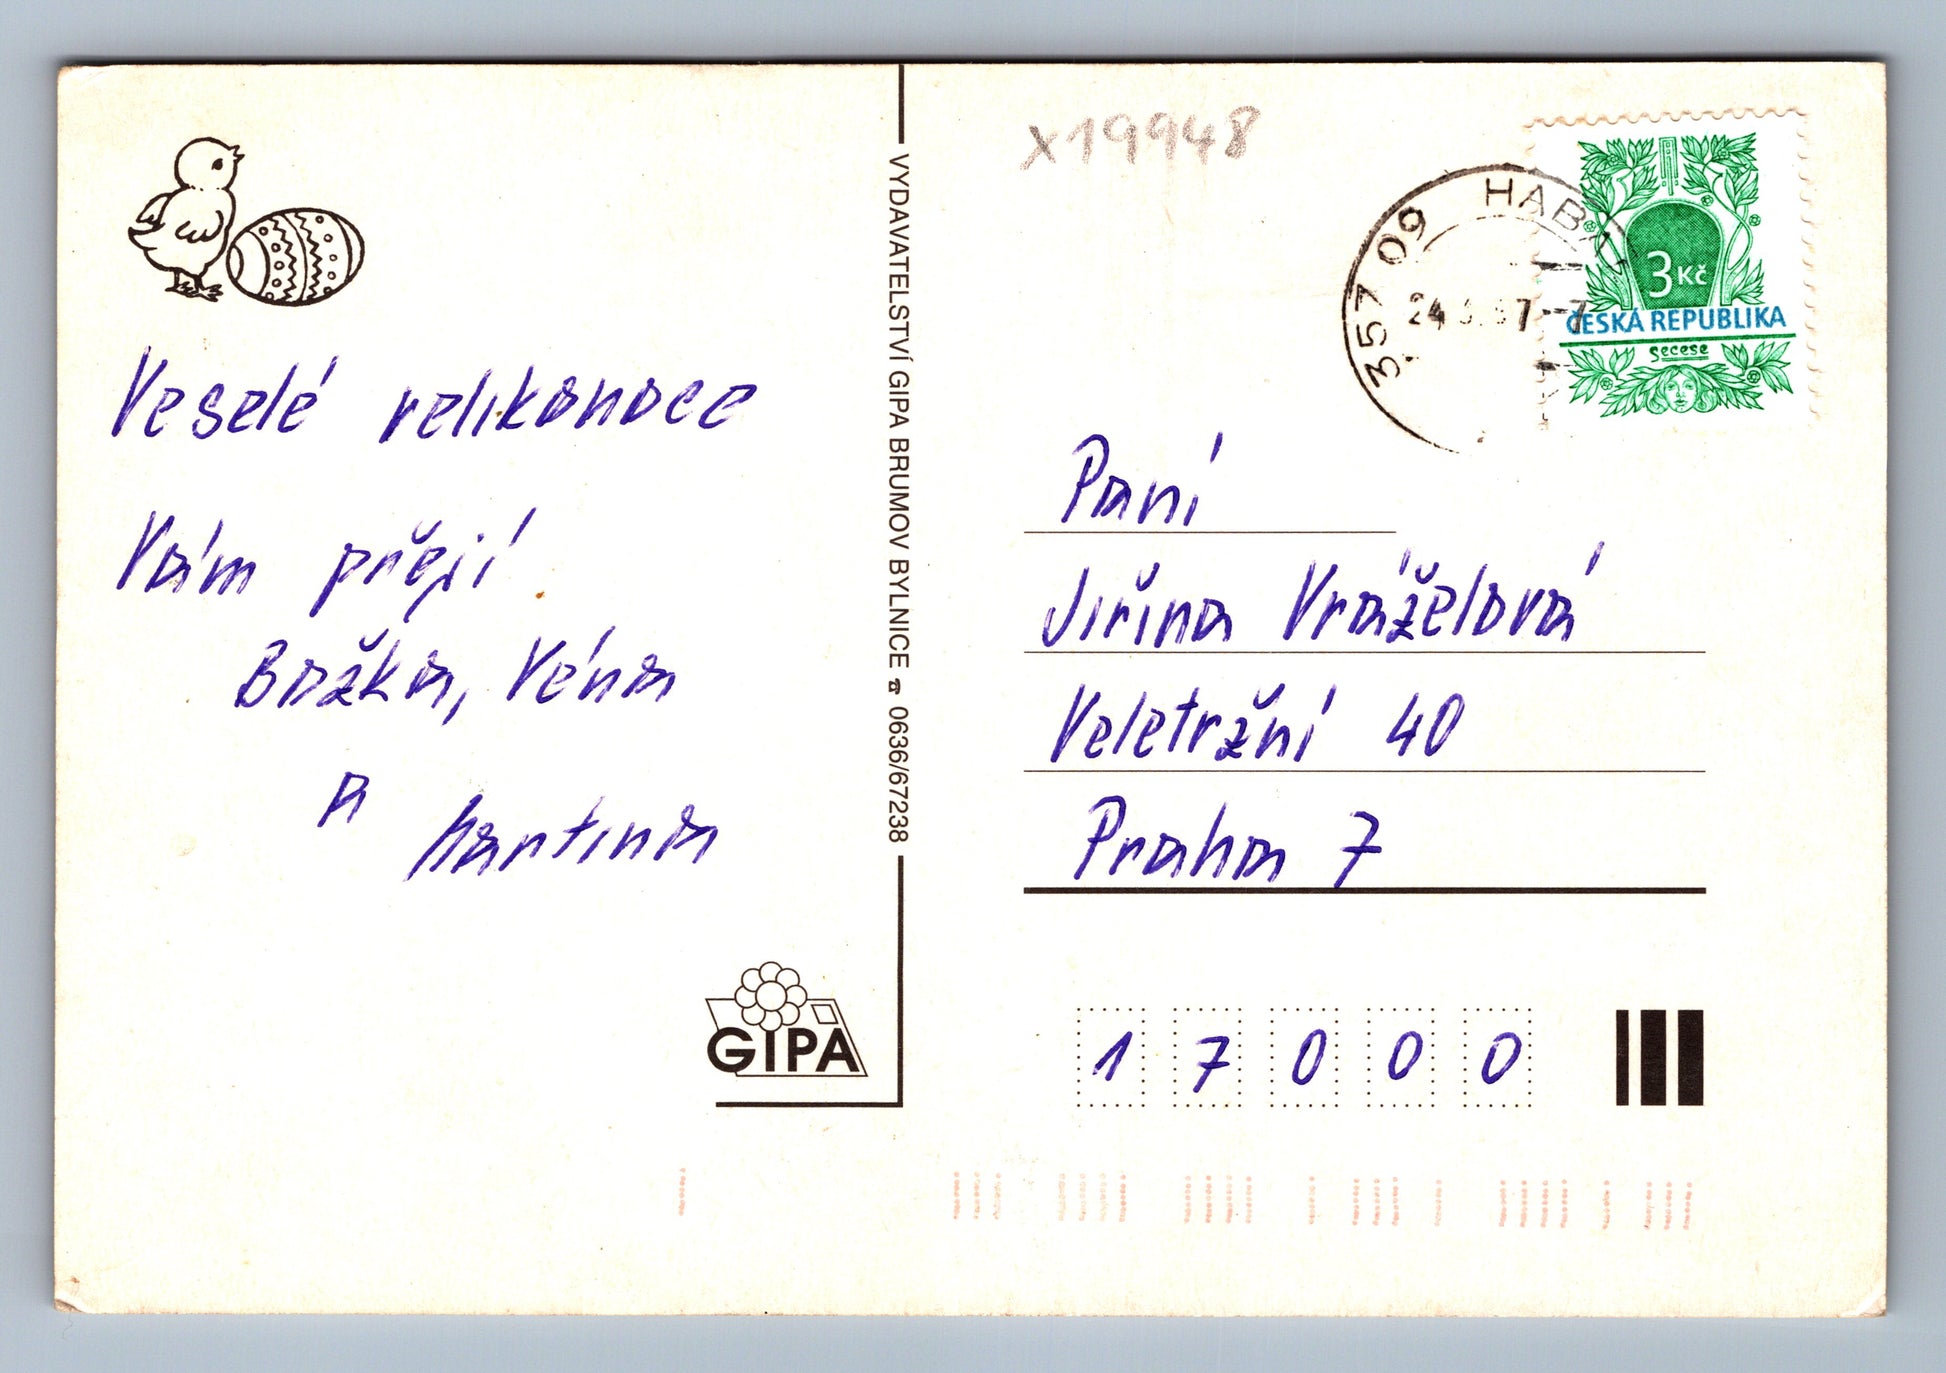 Veselé velikonoce
Vám přejí
Božka, Véna
a Martina
VYDAVATELSTVÍ GIPA BRUMOV BYLNICE ☎ 0636/67238
GIPA
x19948
357 09 HABA
24 3.97-7
3 Kč
ČESKÁ REPUBLIKA
secese
Paní
Jiřina Vráželová
Veletržní 40
Praha 7
1 7 0 0 0